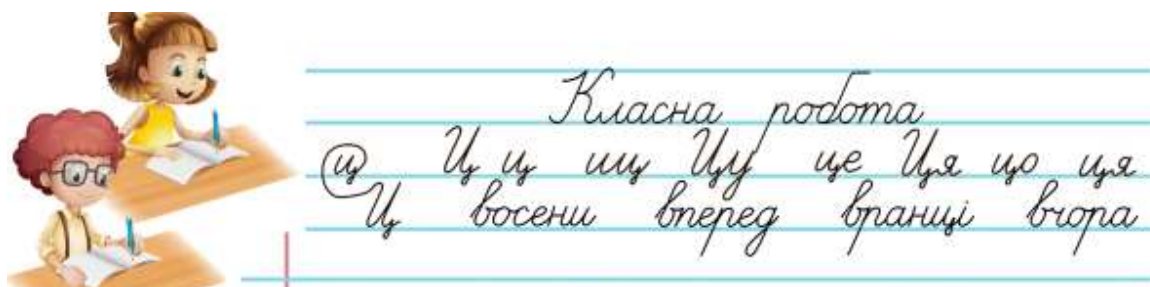 Класна робота
ц Ц ц иц Цу це Ця цо ця
Ц восени вперед вранці вчора